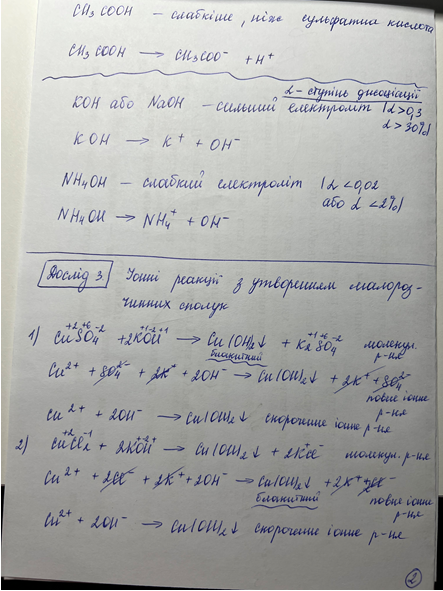 CH₃COOH – слабкіше, ніж сульфатна кислота
CH₃COOH → CH₃COO⁻ + H⁺
α – ступінь дисоціації
KOH або NaOH – сильний електроліт (α>0,3
α>30%)
KOH → K⁺ + OH⁻
NH₄OH – слабкий електроліт (α<0,02
або α<2%)
NH₄OH → NH₄⁺ + OH⁻
Дослід 3 Іонні реакції з утворенням малороз-
чинних сполук
1) Cu⁺²S⁺⁶O₄⁻² + 2K⁺¹O⁻²H⁺¹ → Cu(OH)₂↓ + K₂⁺¹S⁺⁶O₄⁻² молекул.
блакитний р-ня
Cu²⁺ + SO₄²⁻ + 2K⁺ + 2OH⁻ → Cu(OH)₂↓ + 2K⁺ + SO₄²⁻
повне іонне
р-ня
Cu²⁺ + 2OH⁻ → Cu(OH)₂↓ скорочене іонне р-ня
2) Cu⁺²Cl₂⁻¹ + 2KOH → Cu(OH)₂↓ + 2KCl молекул. р-ня
Cu²⁺ + 2Cl⁻ + 2K⁺ + 2OH⁻ → Cu(OH)₂↓ + 2K⁺ + 2Cl⁻
блакитний повне іонне
р-ня
Cu²⁺ + 2OH⁻ → Cu(OH)₂↓ скорочене іонне р-ня
2